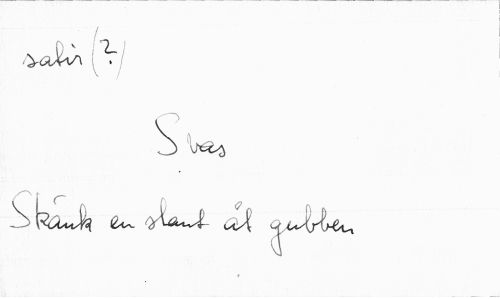 satir (?)
Svas
Skänk en slant åt gubben